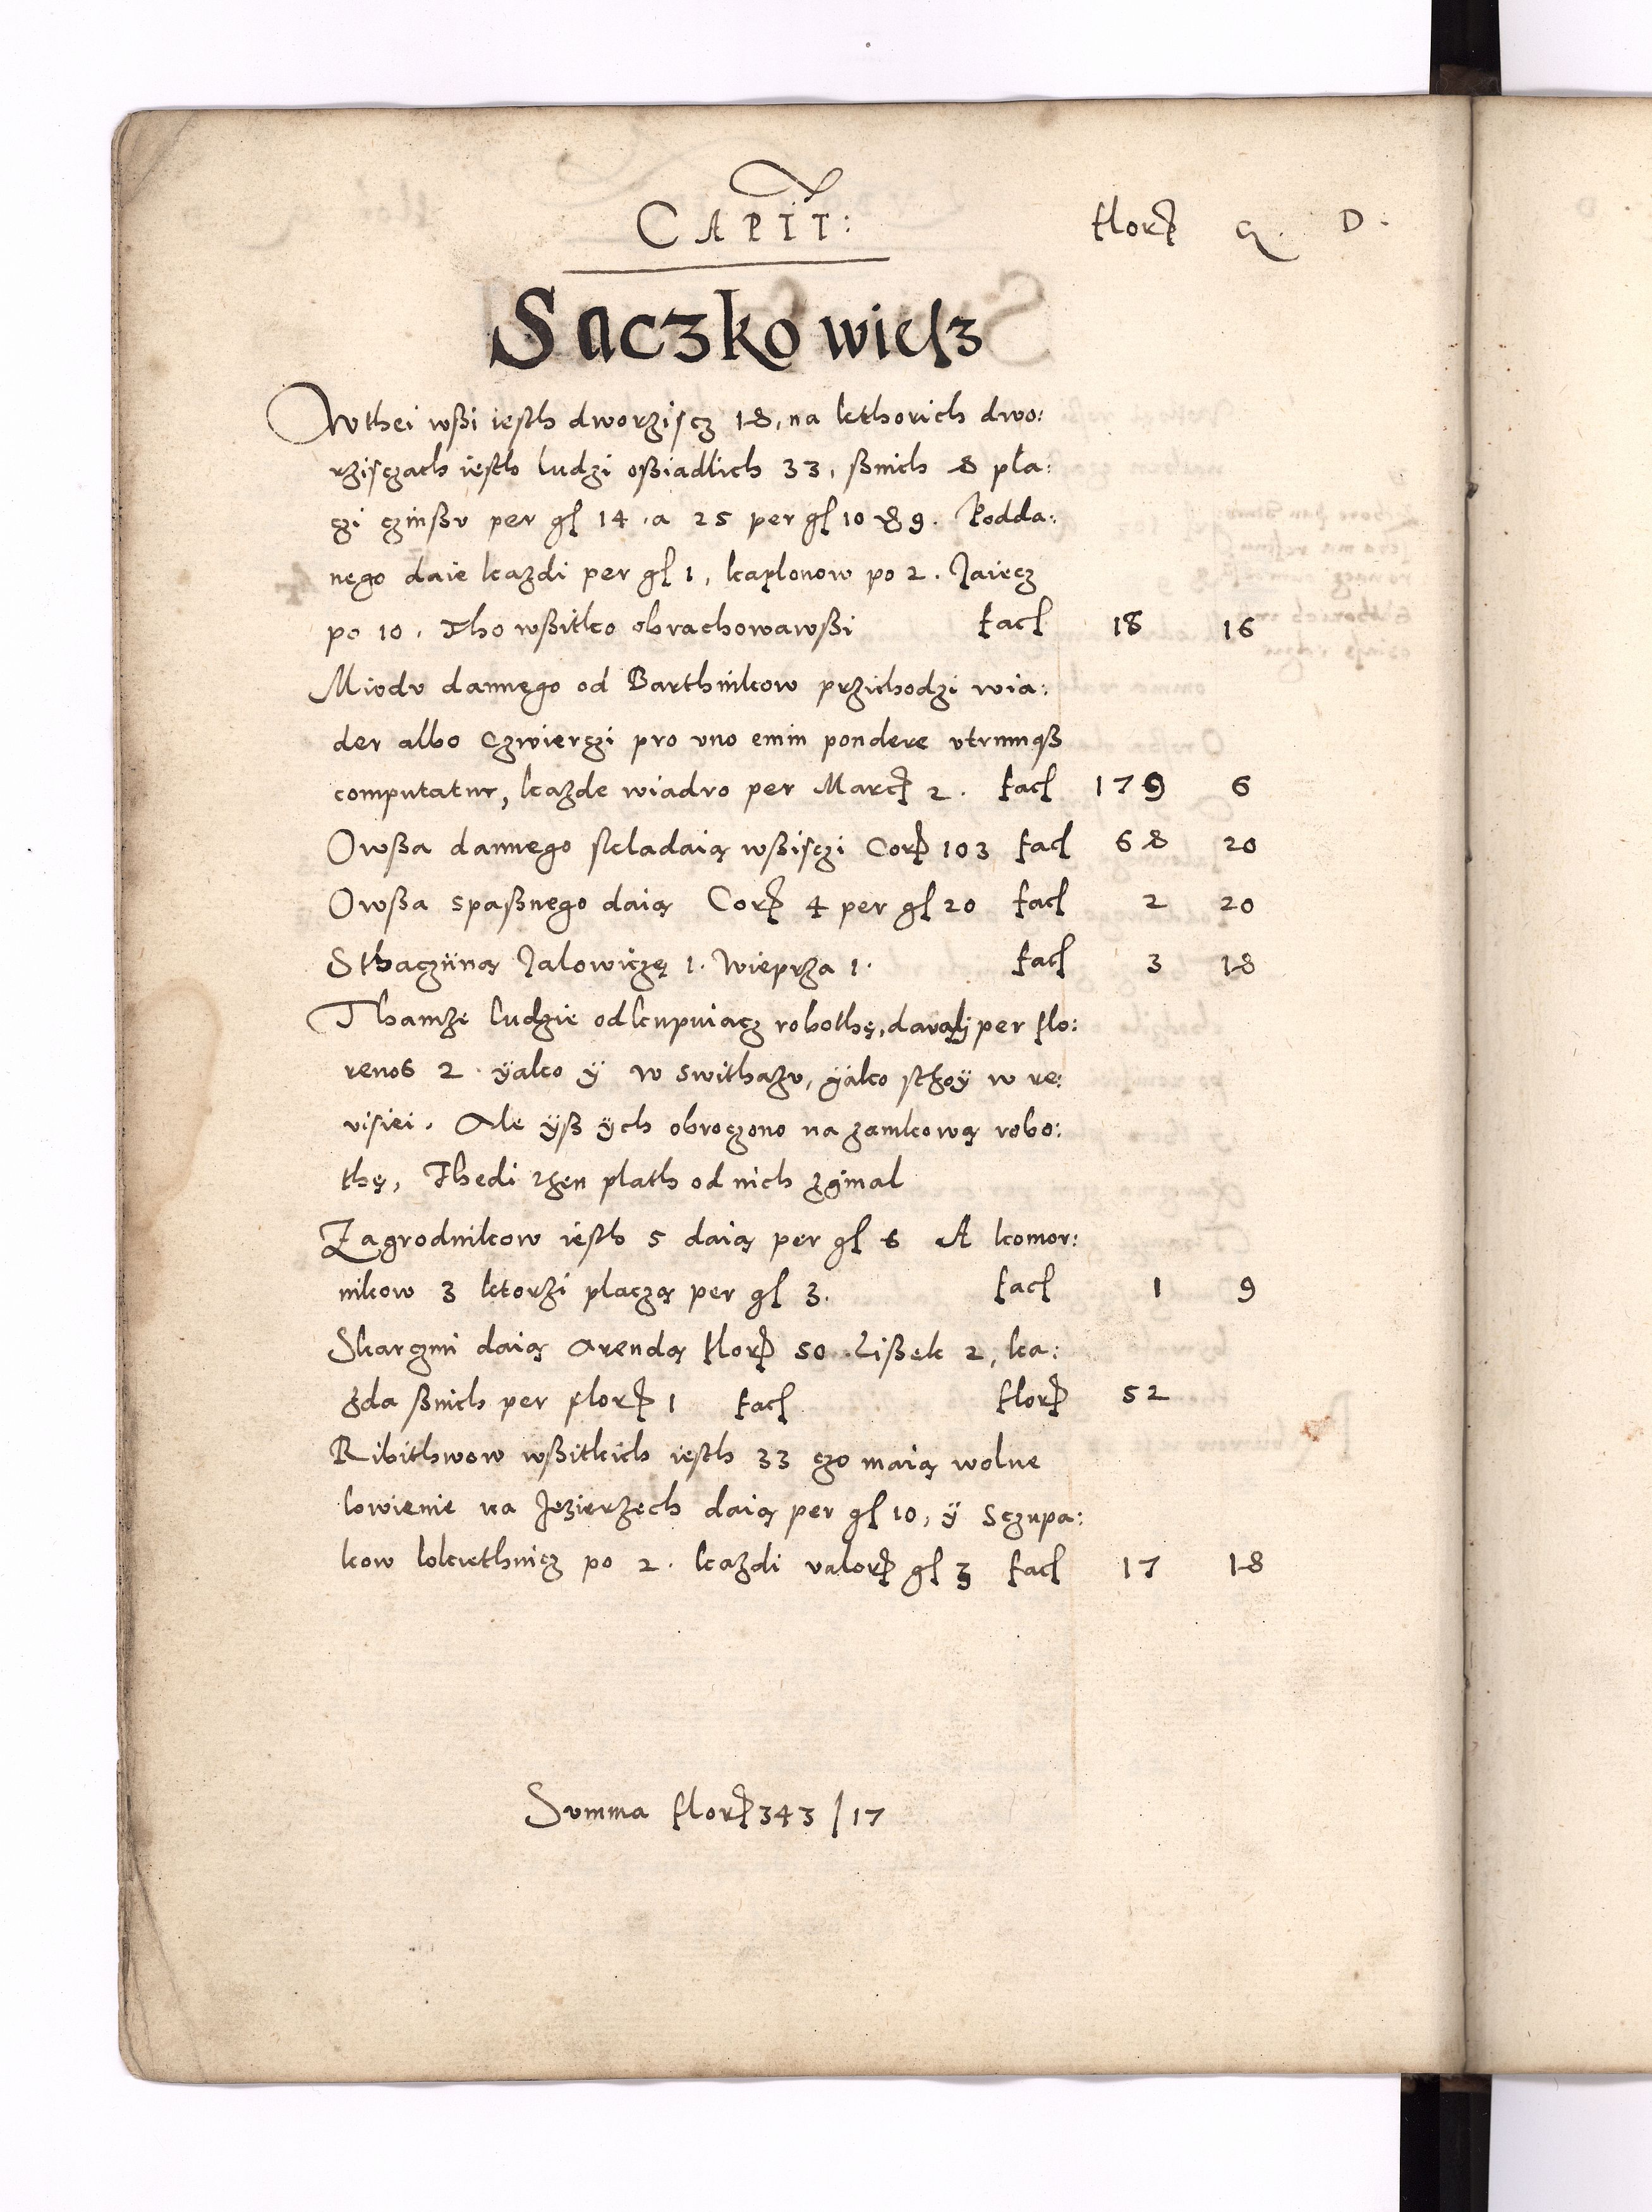 CAPIT: Flor G. D.
Saczko wiesz
W thei wßi iesth dworziscz 18, na kthorich dwo:
rzisczach iesth ludzi oßiadlich 33, ßnich 8 pla:
czi czinßv per gl 14 . a 25 per gl 10 & 9. Podda:
nego daie kazdi per gl 1, kaplonow po 2. Jaiecz
po 10. Tho wßitko obrachowawßi fac 18 16
Miodv dannego od Barthnikow przichodzi wia:
der albo czwierczi pro vno enim pondere vtrumqß
computatur, kazde wiadro per Marc 2. fac 179 6
Owßa dannego skladaią wßisczi Cor 103 fac 68 20
Owßa spaßnego daią Cor 4 per gl 20 fac 2 20
Sthaczÿną Jalowiczę 1. Wieprza 1. fac 3 18
Thamze ludzie odkupuiącz robothę, per flo:
renos 2 . ÿako ÿ w Swithazv, ÿako sthoÿ w re:
visiei. Ale ÿß ÿch obroczono na zamkową robo:
thę, Thedi then plath od nich zginal
Zagrodnikow iesth 5 daią per gl 6 A komor:
nikow 3 ktorzi placzą per gl 3. fac 1 9
Skarczmi daią Arendą flor 50 . Lißek 2, ka:
zda ßnich per flor 1 fac flor 52
Ribithwow wßitkich iesth 33 czo maią wolne
lowienie na Jezierzech daią per gl 10, ÿ Sczupa:
kow lokiethnicz po 2. kazdi valor gl 3 fac 17 18
Summa flor 343 / 17